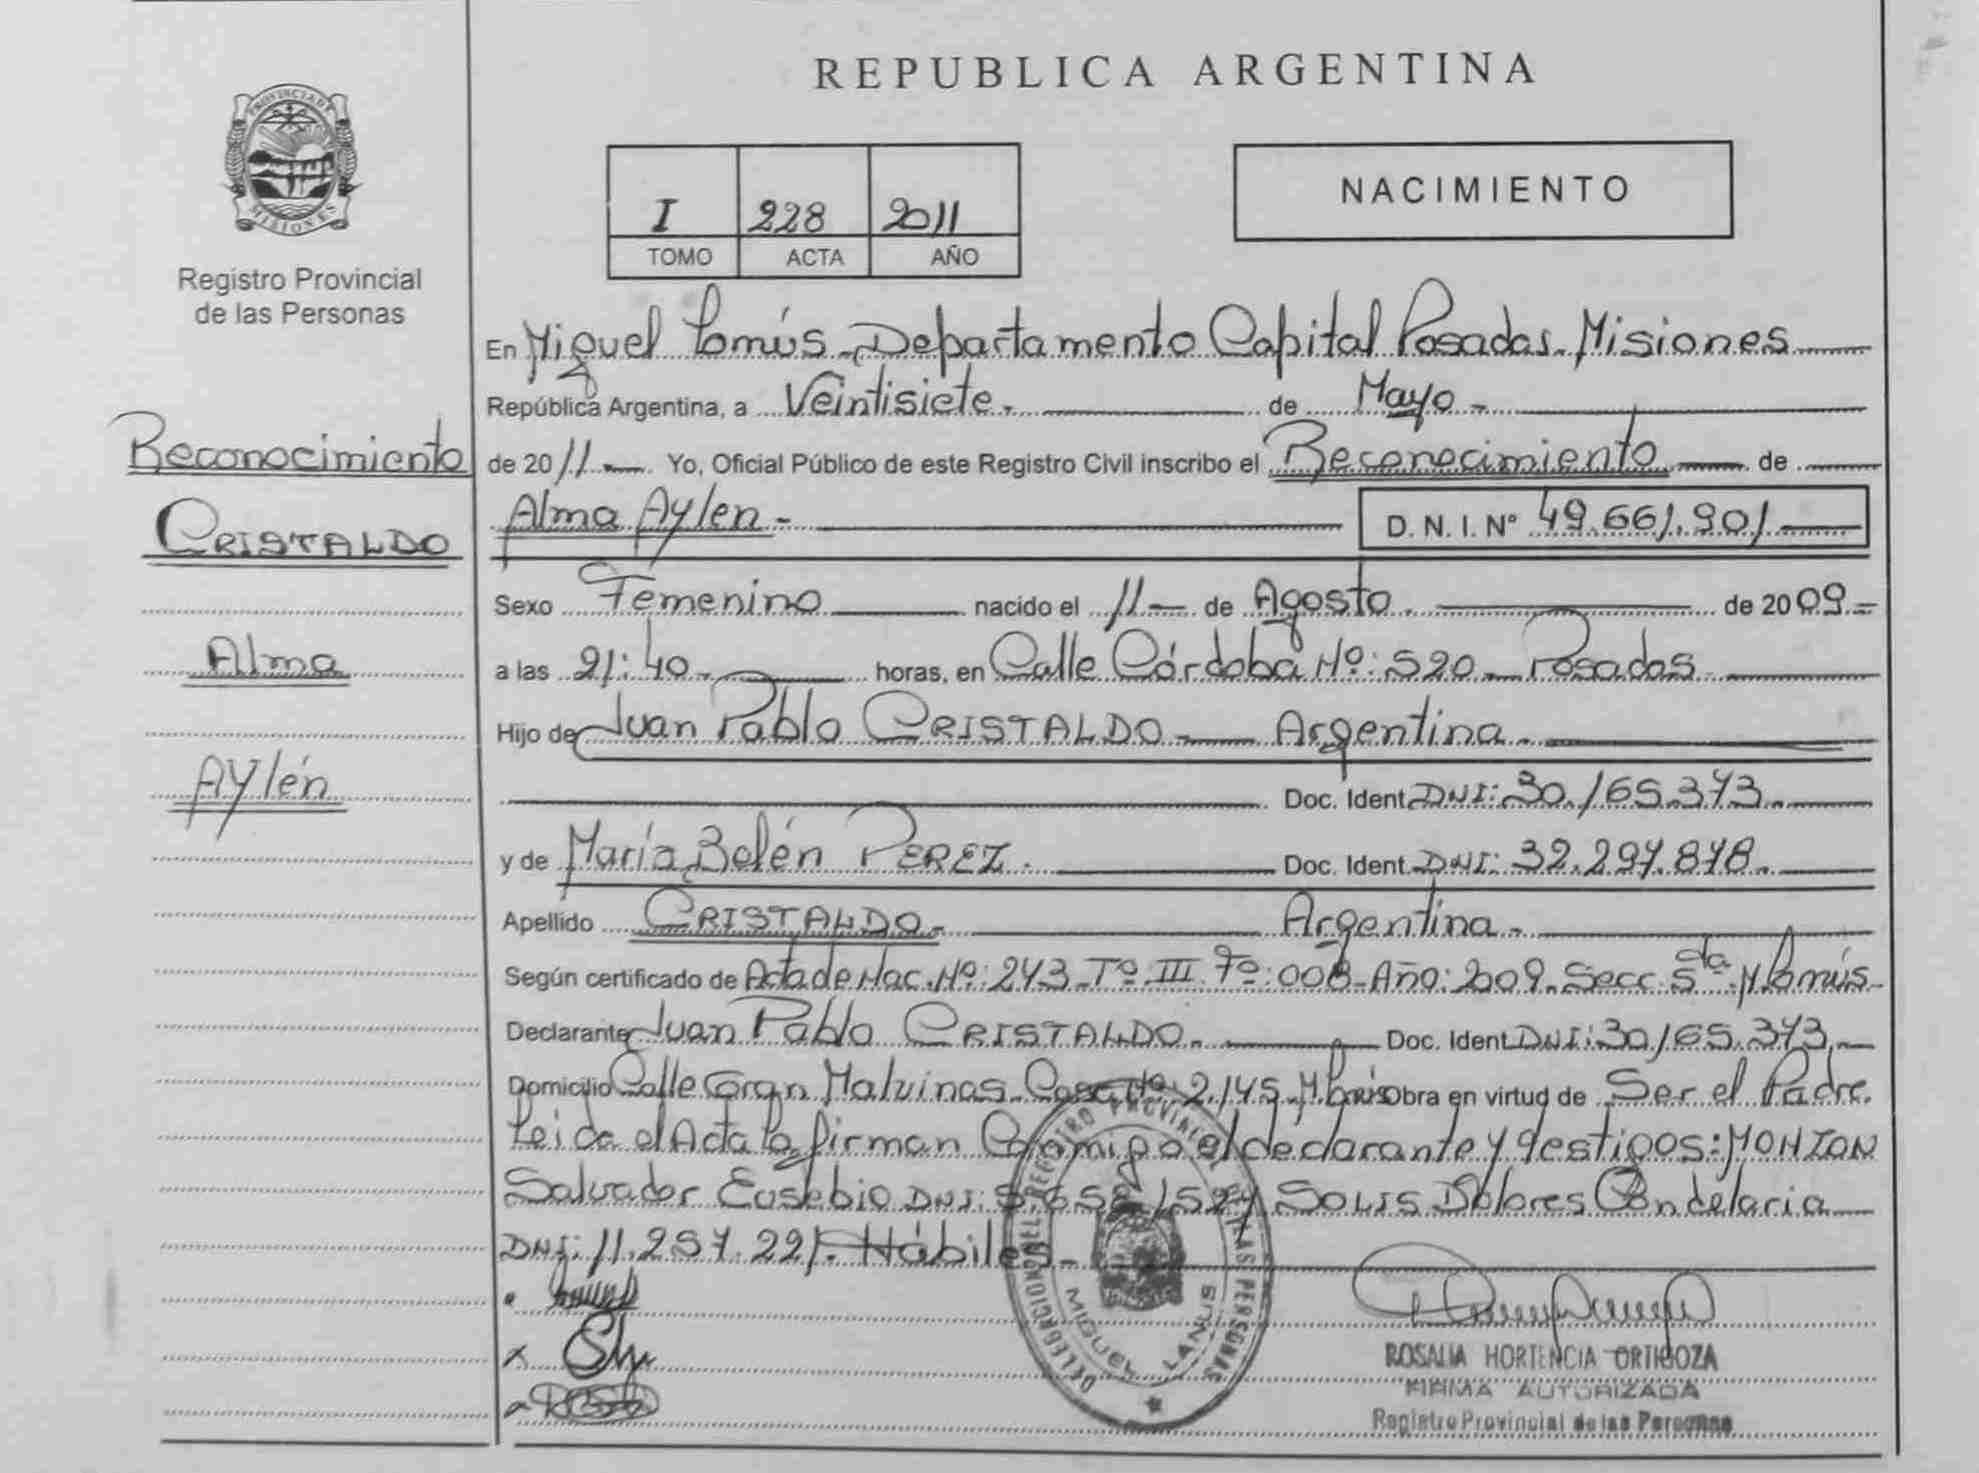 REPUBLICA ARGENTINA
PROVINCIA DE MISIONES
Registro Provincial
de las Personas
I 228 2011
TOMO ACTA AÑO
NACIMIENTO
En Miguel Lanús - Departamento Capital Posadas - Misiones
República Argentina, a Veintisiete.- de Mayo -
Reconocimiento
de 2011 - Yo, Oficial Público de este Registro Civil inscribo el Reconocimiento de
CRISTALDO
Alma Aylen - D. N. I. Nº 49.661.901
Sexo Femenino nacido el 11 - de Agosto. de 2009 =
Alma
a las 21:40 - horas, en Calle Córdoba Nº: 520 - Posadas
Hijo de Juan Pablo CRISTALDO - Argentina -
Aylén
Doc. Ident DNI: 30.165.373.
y de María Belén PEREZ. Doc. Ident DNI: 32.297.878.
Apellido CRISTALDO - Argentina -
Según certificado de Acta de Nac. Nº: 243 - Tº III Fº: 008 - Año: 2009 - Secc. 5ta M. Lanús -
Declarante Juan Pablo CRISTALDO - Doc. Ident DNI: 30.165.373.
Domicilio Calle Gran Malvinas Casa Nº: 2.145 - M. Lanús Obra en virtud de Ser el Padre.
Leida el Acta la firman Conmigo el declarante y testigos: MONZON
Salvador Eusebio DNI: SOLIS Dolores Candelaria
DNI: 11.257.221. Hábiles -
DELEGACION DEL REGISTRO PROVINCIAL DE LAS PERSONAS
MIGUEL LANUS
ROSALIA HORTENCIA ORTIGOZA
FIRMA AUTORIZADA
Registro Provincial de las Personas